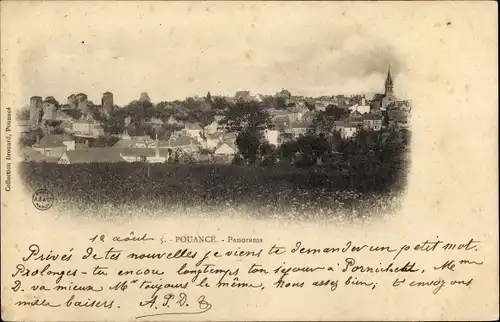 Collection Drouard, Pouancé
12 août 5. - POUANCÉ. - Panorama
Privé de tes nouvelles je viens te demander un petit mot.
Prolonges-tu encou longtemps ton séjour à Pornichet, Mme
D. va mieux Mr toujours le même, nous assez bien, t'envoyons
mille baisers. A. P. D.